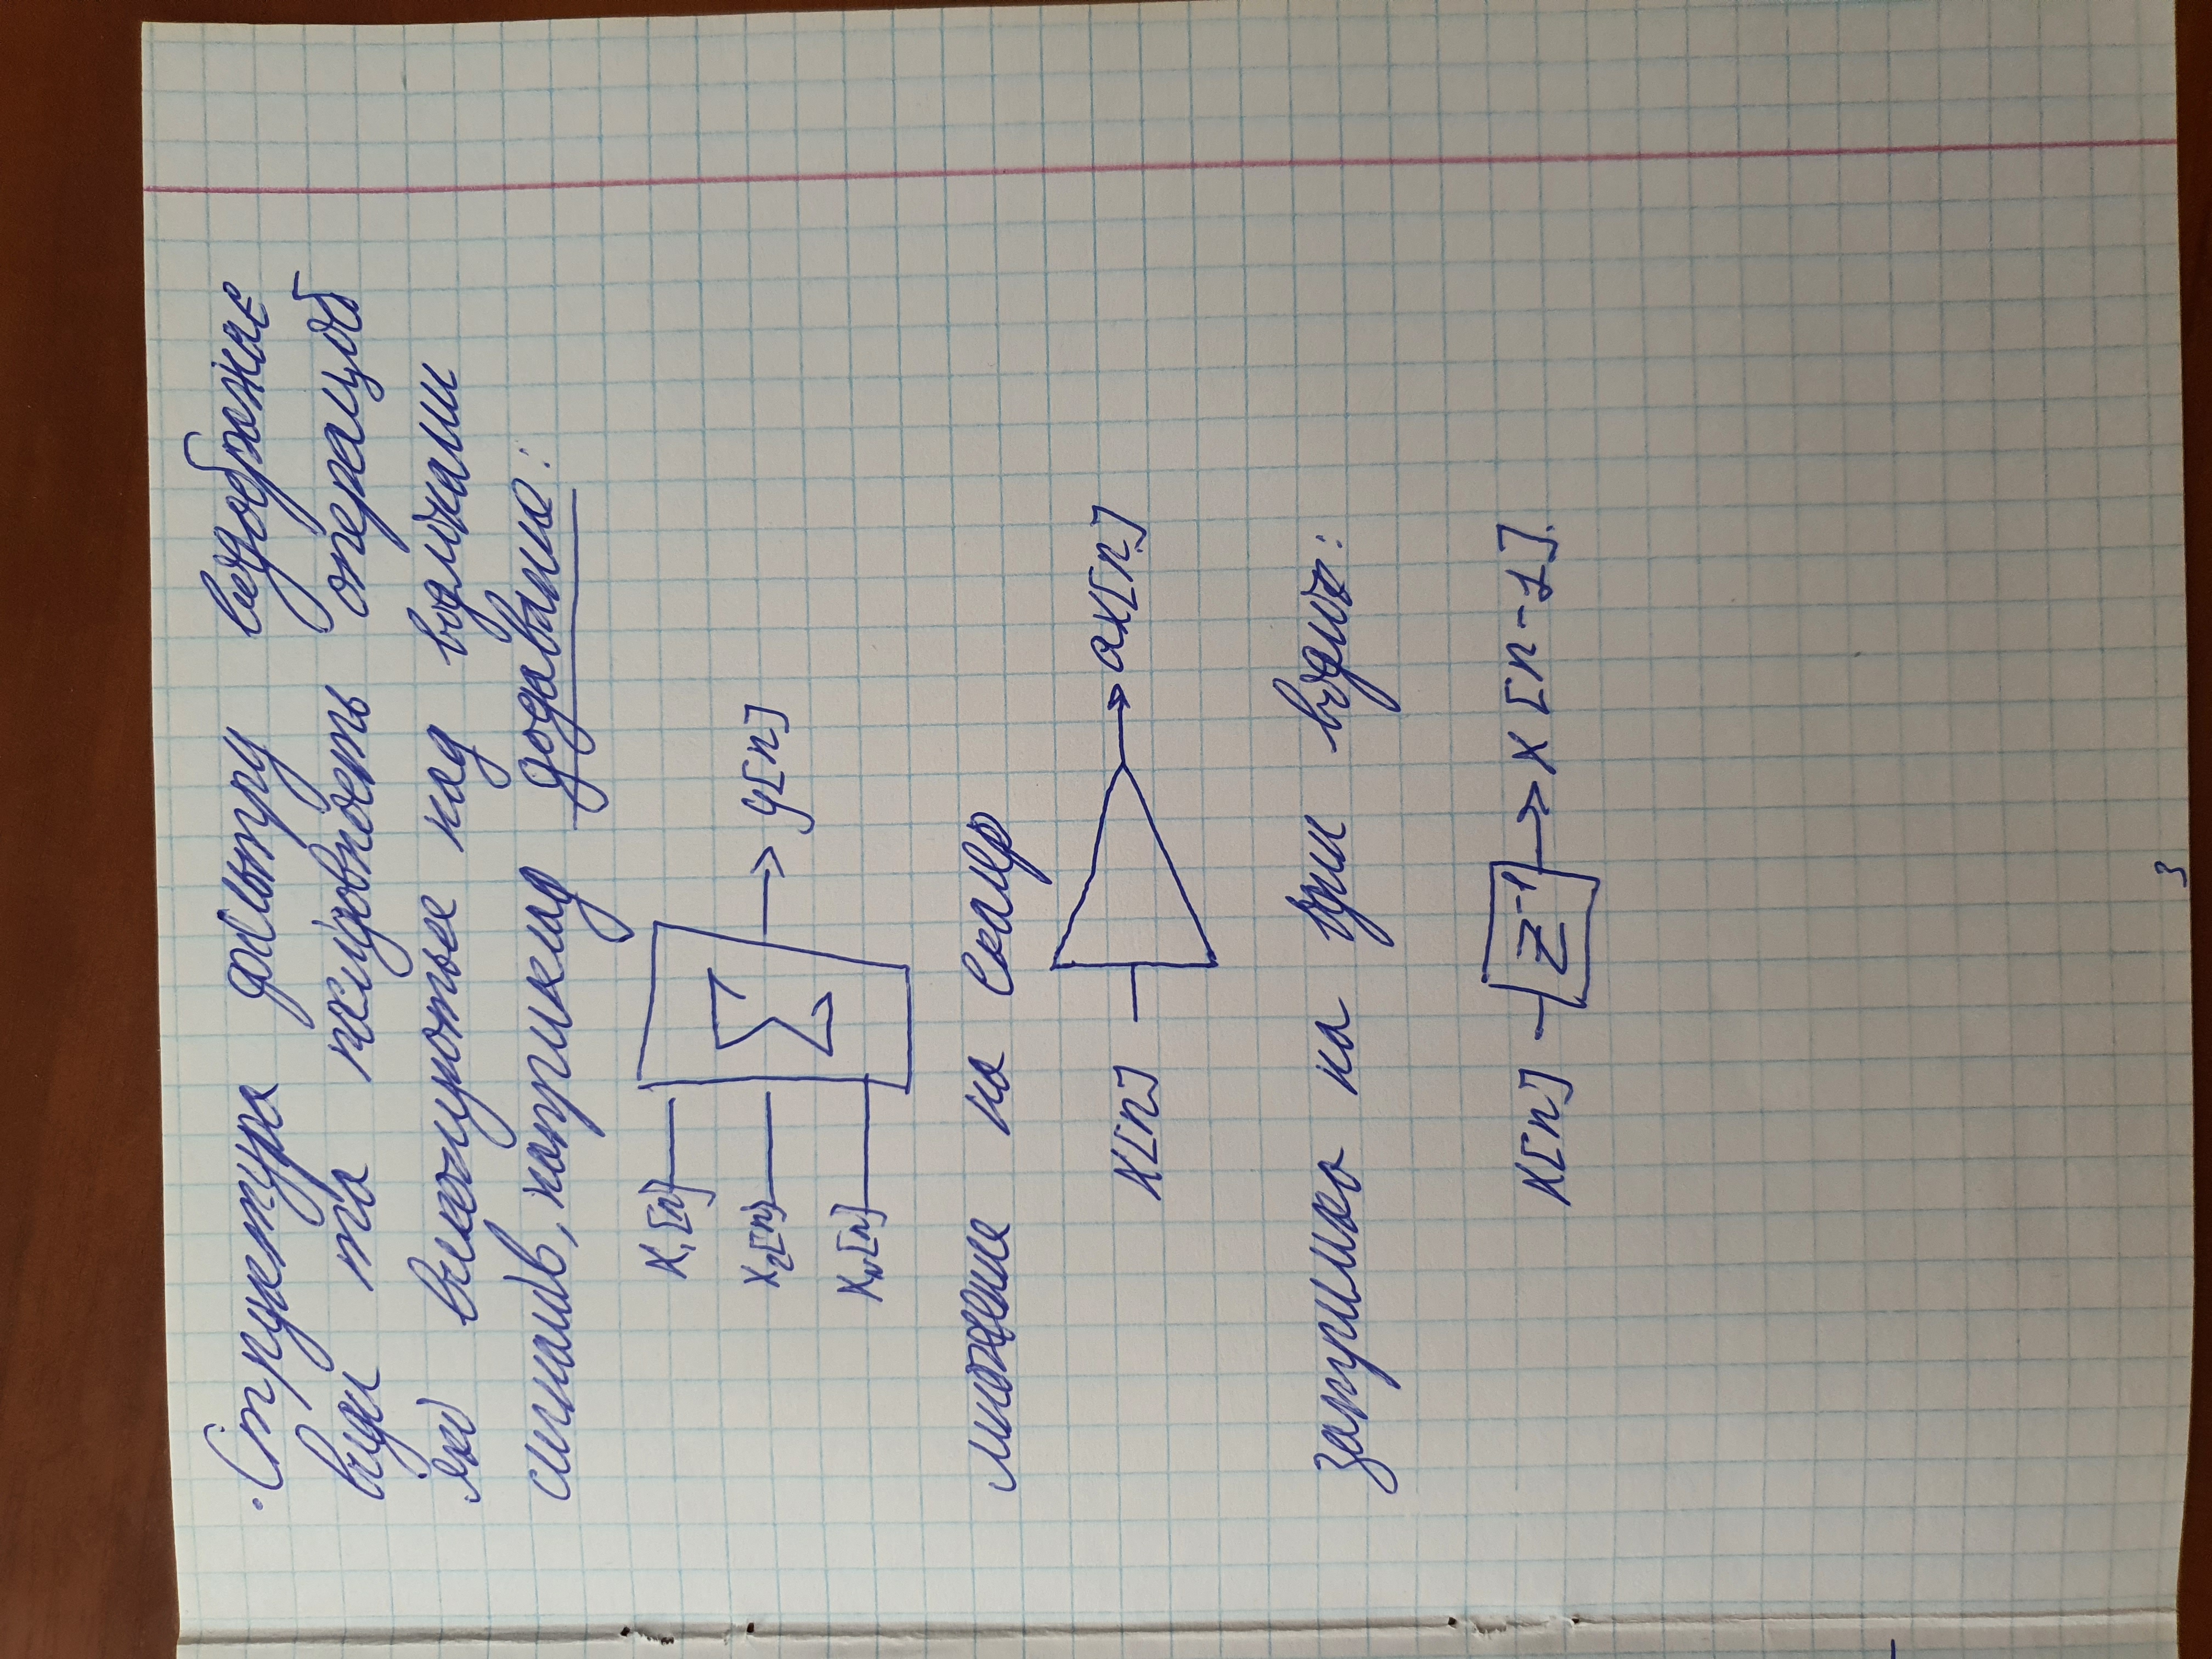 Структура фільтру відображає
види та послідовность операцій
які виконуються над відліками
сигналів, наприклад додавання:
x₁[n]
x₂[n]
Σ
y[n]
xN[n]
множення на скаляр
x[n]
ax[n]
затримка на один відлік:
x[n]
z⁻¹
x[n-1].
3